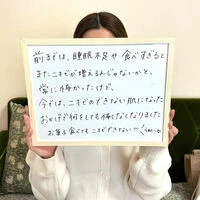 前までは、睡眠不足や食べすぎると
またニキビが増えるんじゃないかと、
常に怖かったけど、
今では、ニキビのできない肌になった
おかげで何をしても怖くなくなりました
お菓子食べてもニキビできない